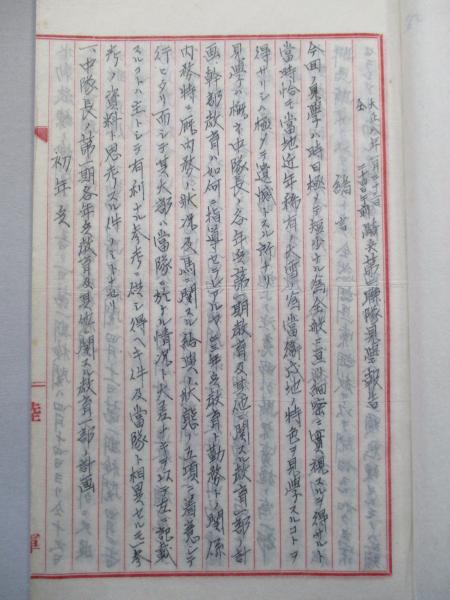 大正八年二月二十一日
仝 二十四日ノ間 騎兵第二聯隊見學報告
緒言
今回ノ見學ハ時日極メテ短少ナル為全般ニ亘リ細密ニ實視スルヲ得サルト
當時恰モ當地近年稀有ノ大雪ノ為當衛戍地ノ特色ヲ見學スルコトヲ
得サリシハ極メテ遺憾トスル所ナリ
見學ハ概ネ中隊長ノ各年兵第一期教育及其他ニ関スル教育一部ノ計
画幹部教育ハ如何ニ指導セラレアルヤ二三年兵教育ト勤務トノ関係
内務特ニ厩内務ノ状況及馬ニ関スル諸興ノ状態ノ五項ニ着意シテ
行ヒタリ而シテ其大部ハ當隊ニ於ケル情況ト大差ナキヲ以テ左ニ記載
スルコトハ主トシテ有利ナル参考ニ供シ得ヘキ件及當隊ト相異セルモノニシテ参
考ノ資料ト思考スル件ノミトナセリ
一、中隊長ノ第一期各年兵教育及其他ニ関スル教育一部ノ計画
初年兵
陸軍